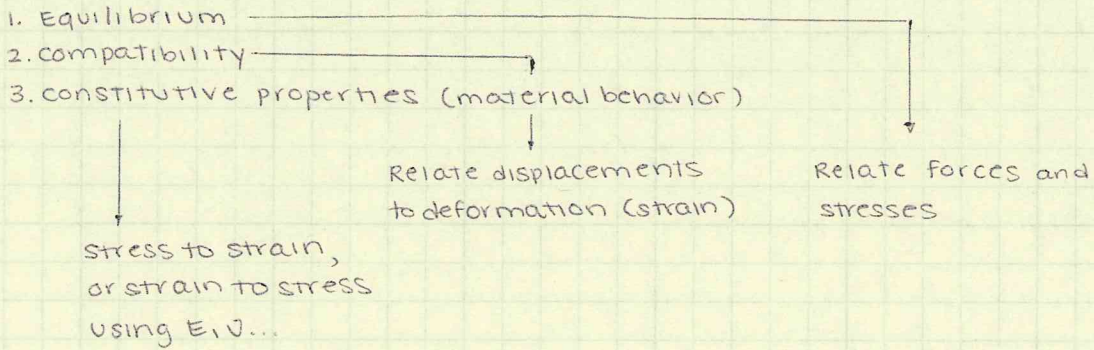 1. Equilibrium
2. compatibility
3. constitutive properties (material behavior)
Relate displacements
to deformation (strain)
Relate forces and
stresses
stress to strain,
or strain to stress
using E, ν...